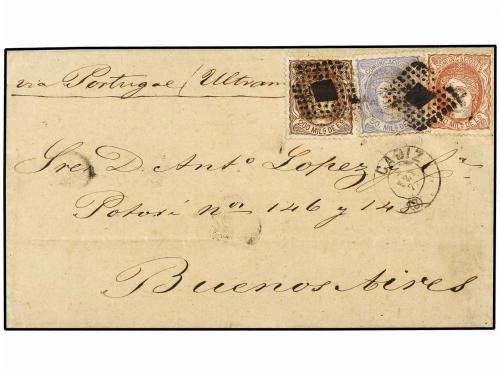 via Portugal (Ultram
COMUNICACIONES
200 MILS DE E
50 MILS DE E
MILS DE E
CADIZ
Sres D. Anto Lopez y Ca
Potosí nos 146 y 14
Buenos Aires